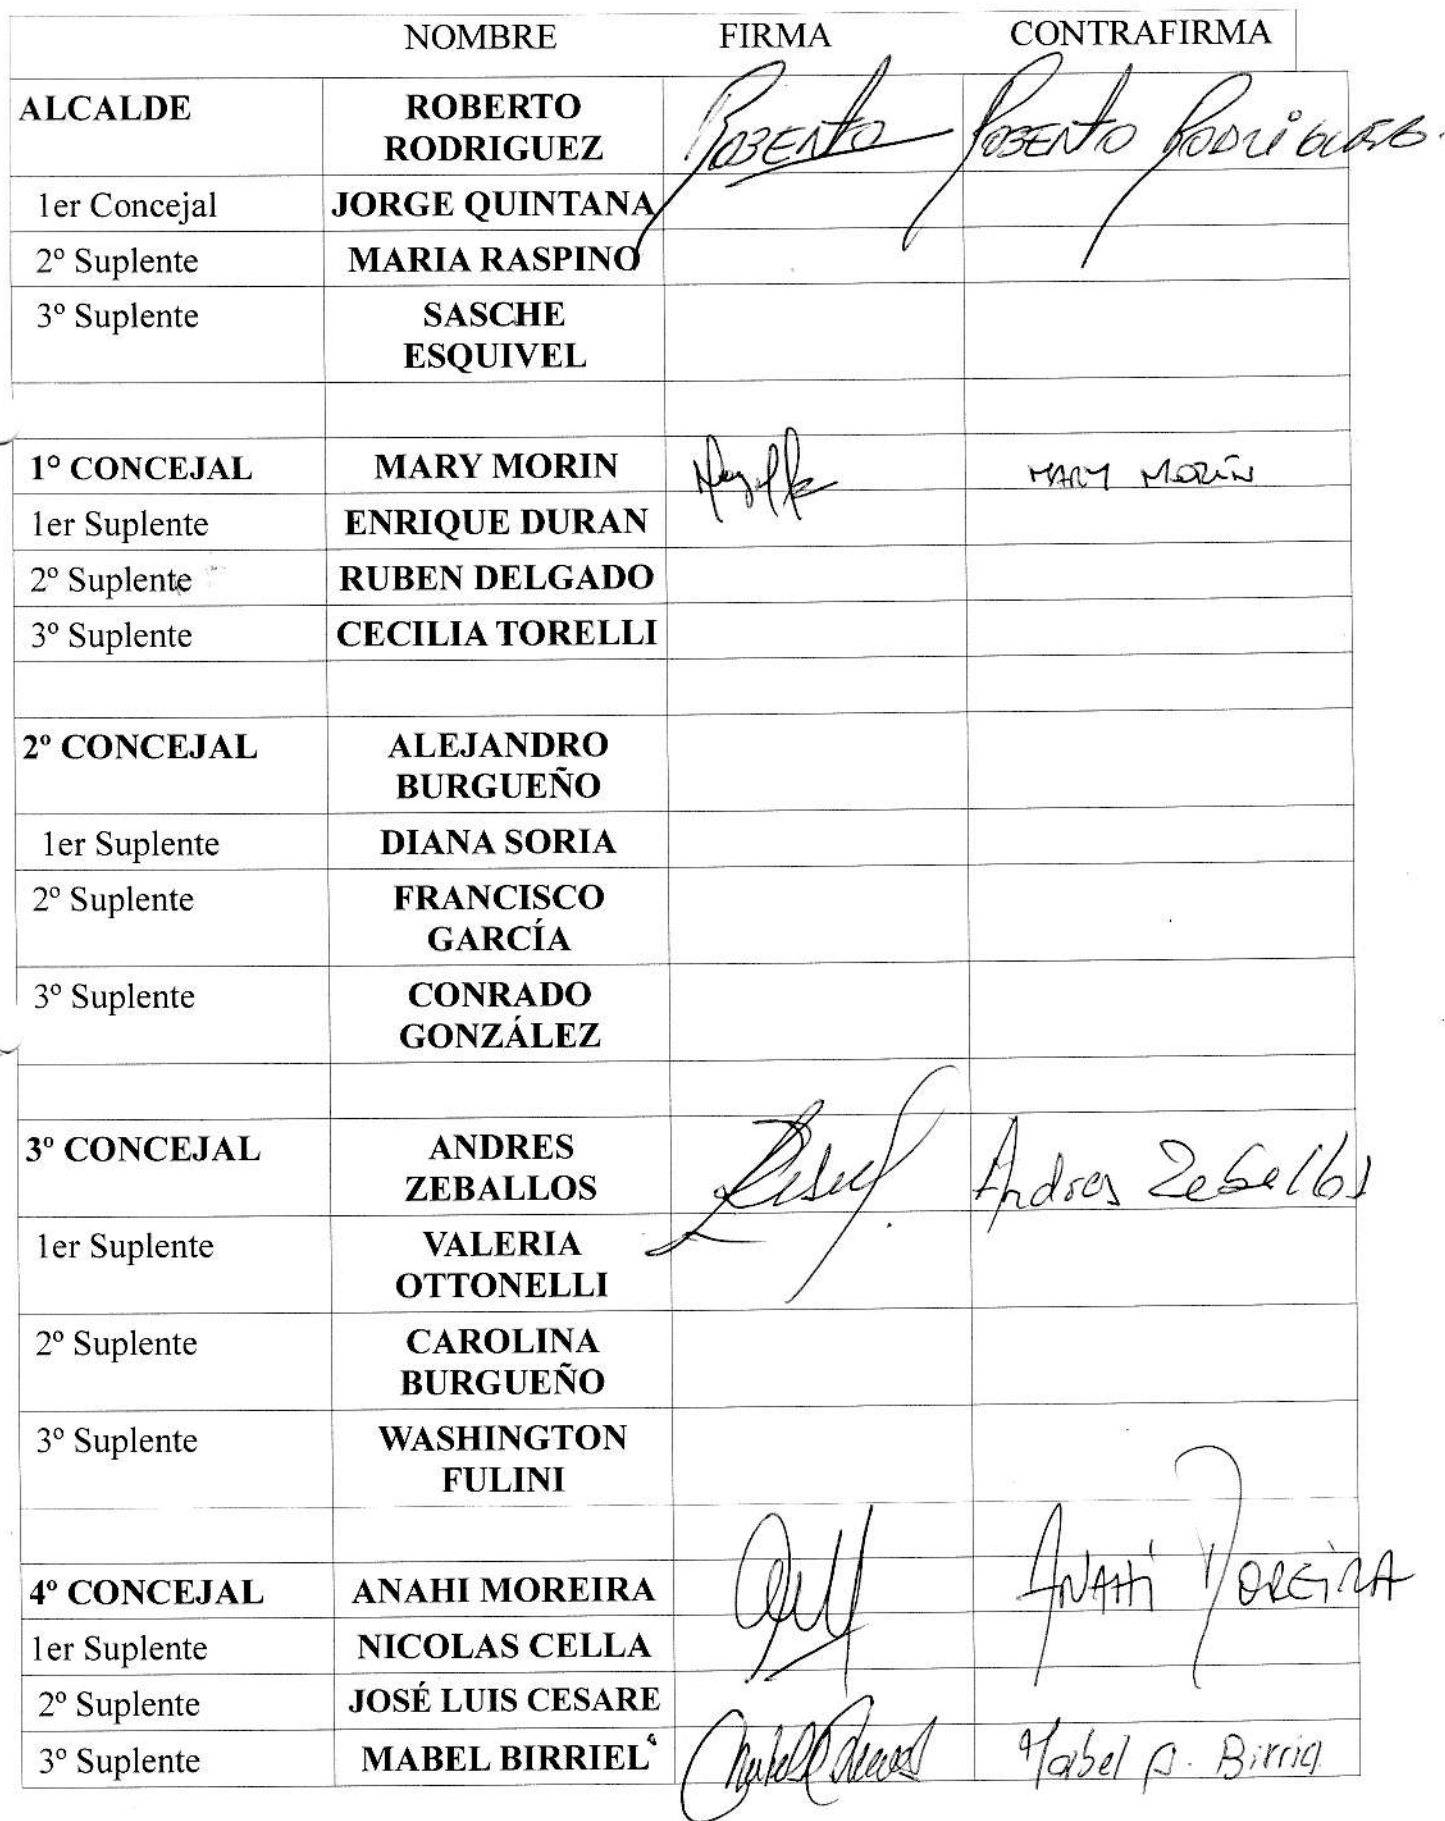 NOMBRE FIRMA CONTRAFIRMA
ALCALDE ROBERTO Roberto Roberto Rodriguez.
RODRIGUEZ
1er Concejal JORGE QUINTANA
2º Suplente MARIA RASPINO
3º Suplente SASCHE
ESQUIVEL
1º CONCEJAL MARY MORIN MARY MORÍN
1er Suplente ENRIQUE DURAN
2º Suplente RUBEN DELGADO
3º Suplente CECILIA TORELLI
2º CONCEJAL ALEJANDRO
BURGUEÑO
1er Suplente DIANA SORIA
2º Suplente FRANCISCO
GARCÍA
3º Suplente CONRADO
GONZÁLEZ
3º CONCEJAL ANDRES Andres Zeballos
ZEBALLOS
1er Suplente VALERIA
OTTONELLI
2º Suplente CAROLINA
BURGUEÑO
3º Suplente WASHINGTON
FULINI
4º CONCEJAL ANAHI MOREIRA ANAHÍ MOREIRA
1er Suplente NICOLAS CELLA
2º Suplente JOSÉ LUIS CESARE
3º Suplente MABEL BIRRIEL Mabel Birriel